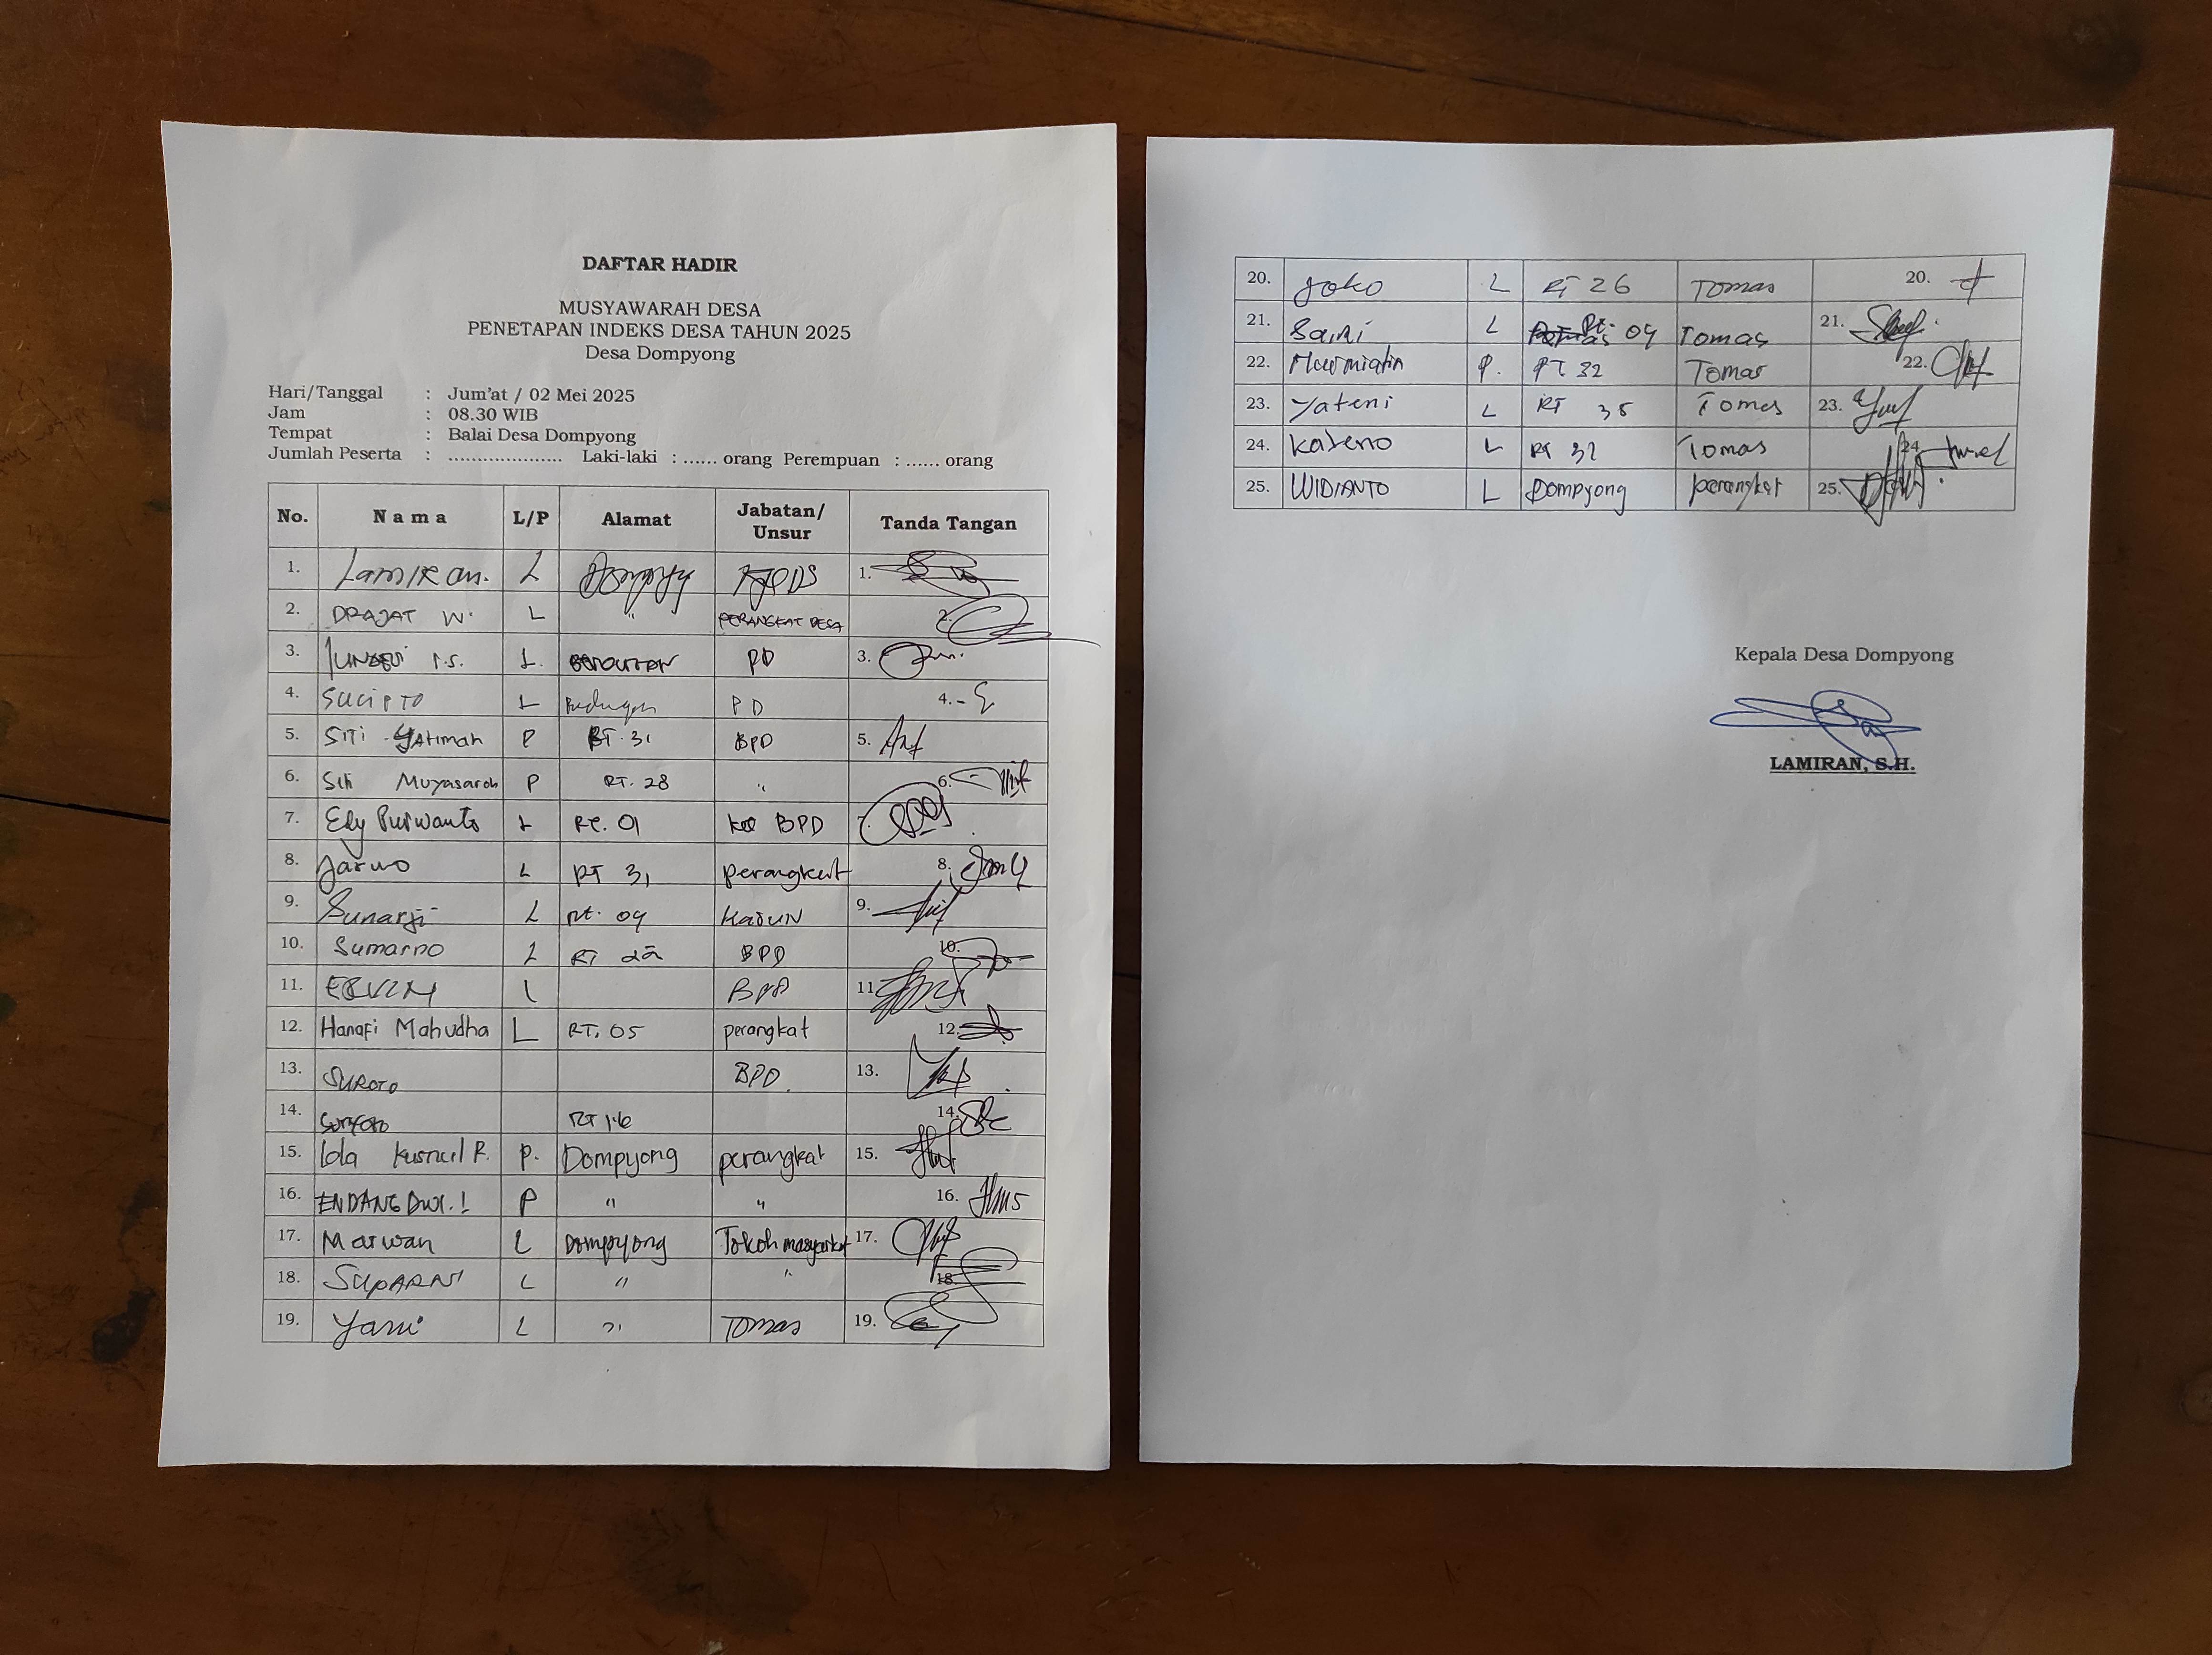 DAFTAR HADIR
MUSYAWARAH DESA
PENETAPAN INDEKS DESA TAHUN 2025
Desa Dompyong
Hari/Tanggal : Jum'at / 02 Mei 2025
Jam : 08.30 WIB
Tempat : Balai Desa Dompyong
Jumlah Peserta : ................... Laki-laki : ...... orang Perempuan : ...... orang
No. Nama L/P Alamat Jabatan/Unsur Tanda Tangan
1. Lamiran. L Dompyong 1.
2. DRAJAT W. L " PERANGKAT DESA 2.
3. L. PD 3.
4. SUCIPTO L PD 4.
5. SITI YATIMAH P RT. 31 BPD 5.
6. Siti Muyasaroh P RT. 28 " 6.
7. Edy Purwanto L RT. 01 BPD 7.
8. Jarwo L RT 31 perangkat 8.
9. Sunarji L Rt. 09 KASUN 9.
10. Sumarno L RT 22 BPD 10.
11. L BPD 11.
12. Hanafi Mahudha L RT. 05 perangkat 12.
13. SUROTO BPD. 13.
14. RT 16 14.
15. Lola Kusnul R. P. Dompyong perangkat 15.
16. ENDANG DWI. L P " " 16.
17. Marwan L Dompyong Tokoh masyarakat 17.
18. SUPARNI L " " 18.
19. Yani L " Tomas 19.
20. Joko L RT 26 Tomas 20.
21. Saini L Rt. 09 Tomas 21.
22. Murmiatin P. RT 32 Tomas 22.
23. Yateni L RT 35 Tomas 23.
24. Kateno L RT 32 Tomas 24.
25. WIDIANTO L Dompyong perangkat 25.
Kepala Desa Dompyong
LAMIRAN, S.H.